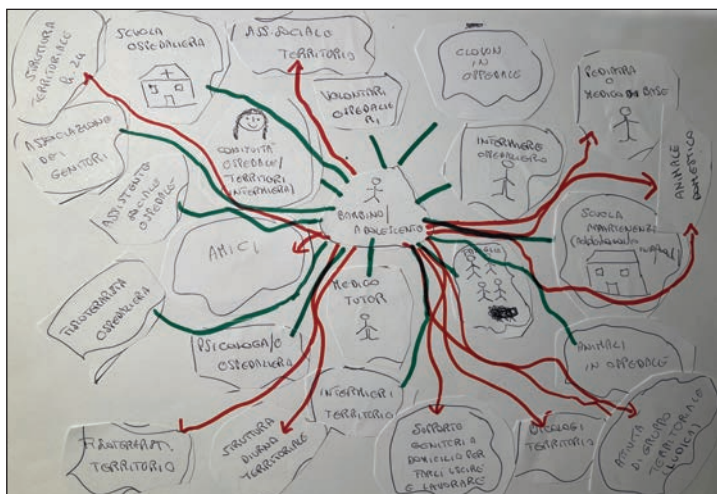 STRUTTURA
TERRITORIALE
h. 24
SCUOLA
OSPEDALIERA
ASS. SOCIALE
TERRITORIO
CLOWN
IN
OSPEDALE
PEDIATRA
O
MEDICO DI BASE
VOLONTARI
OSPEDALIE
RI
ASSOCIAZIONE
DEI
GENITORI
CONTINUITÀ
OSPEDALE/
TERRITORIO
INFERMIERA/
INFERMIERE
OSPEDALIERO
ANIMALE
DOMESTICO
ASSISTENTE
SOCIALE
OSPEDALE
BAMBINO/
ADOLESCENTE
SCUOLA
APPARTENENZA
AMICI
FISIOTERAPISTA
OSPEDALIERA
MEDICO
TUTOR
PSICOLOGA/O
OSPEDALIERA
ANIMALI
IN OSPEDALE
INFERMIERI
TERRITORIO
FISIOTERAPISTI
TERRITORIO
STRUTTURA
DIURNA
TERRITORIALE
SUPPORTO
GENITORI A
DOMICILIO PER
FARLI USCIRE
E LAVORARE
PSICOLOGI
TERRITORIO
ATTIVITÀ
DI GRUPPO
TERRITORIALE
(LUDICA)